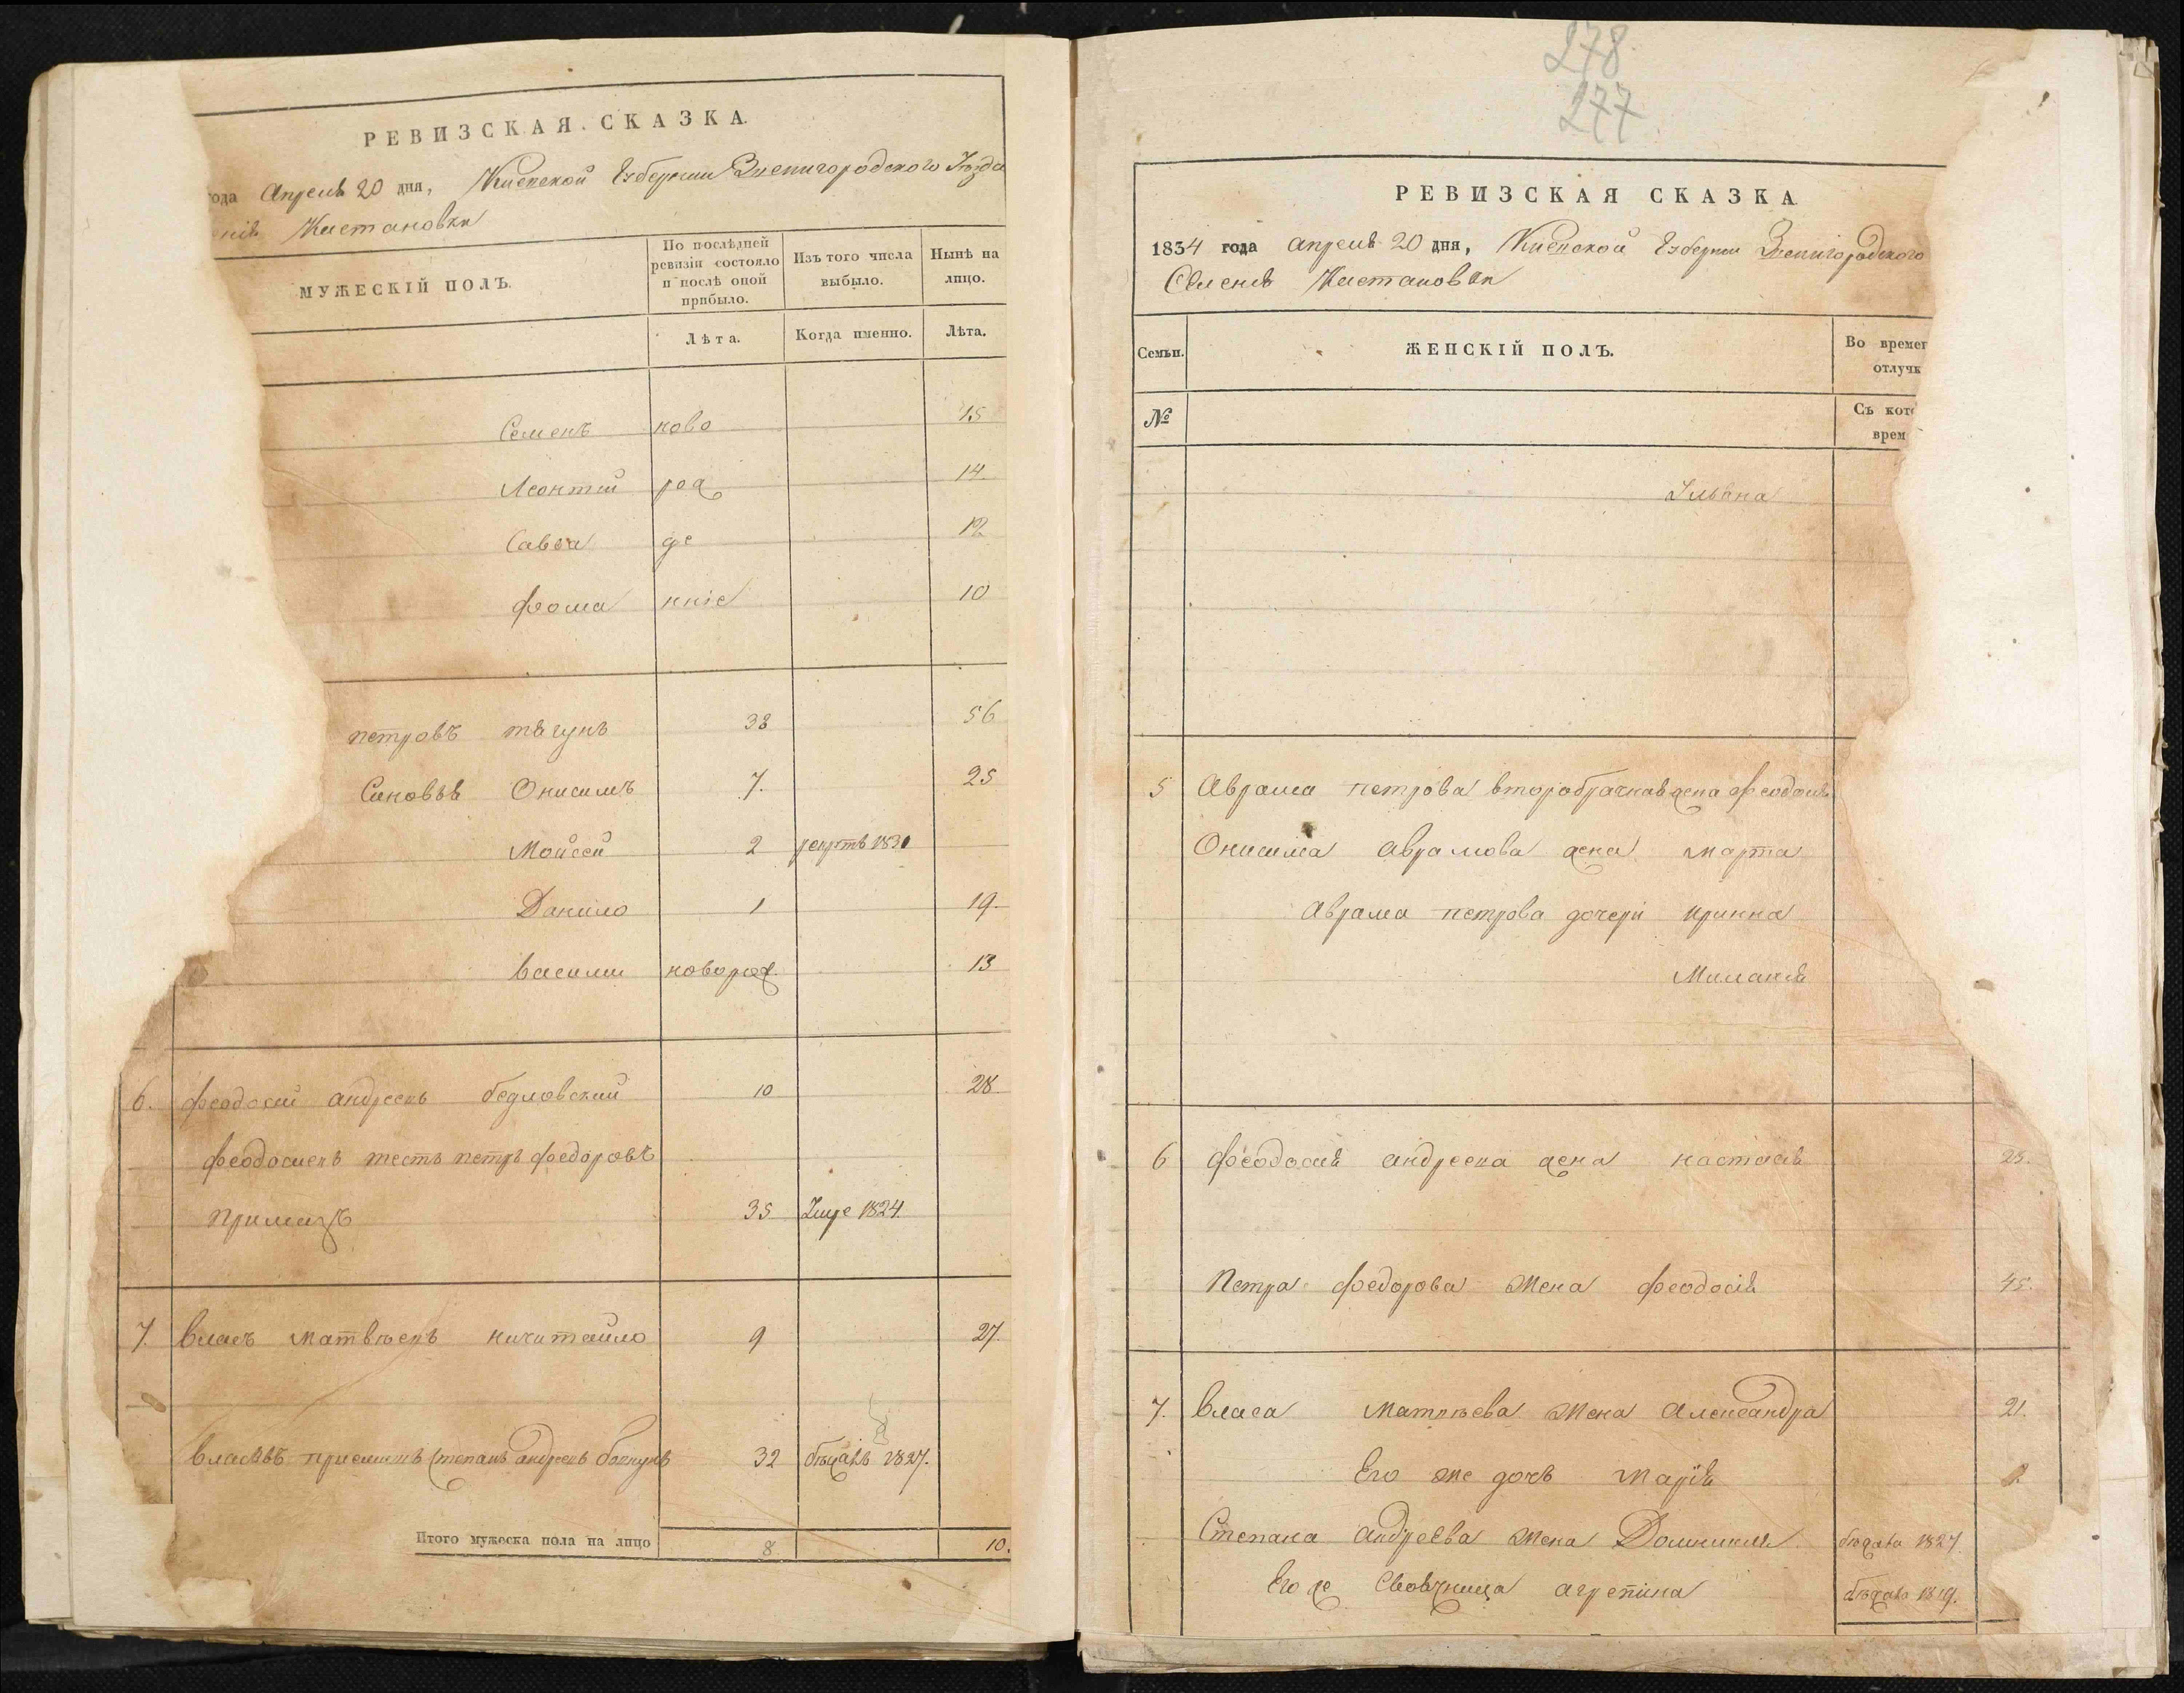 РЕВИЗСКАЯ СКАЗКА.
года Апреля 20 дня, Киевской Губернии Звенигородского Уезда
Кистановки
МУЖЕСКІЙ ПОЛЪ.
По послѣдней ревизіи состояло и послѣ оной прибыло.
Изъ того числа выбыло.
Нынѣ на лицо.
Лѣта.
Когда именно.
Лѣта.
Семенъ ново 15
Леонтий рож 14
Савва де 12
Фома нніе 10
петровъ 38 56
Синовья Онисимъ 7. 25
Мойсей 2 1831
Данило 1 19
Василий новорож. 13
6. Феодосий андреевъ бедловский 10 28
Феодосиевъ тесть петръ федоровъ
примакъ 35 Умре 1824.
7. Власъ Матвѣевъ кичитайло 9 27.
Власовъ приемишъ Степанъ андреевъ 32 бѣжавъ 1827.
Итого мужеска пола на лицо 8 10.
278
277
РЕВИЗСКАЯ СКАЗКА
1834 года апреля 20 дня, Киевской Губернии Звенигородского
Селения Кистановки
Семьи.
ЖЕНСКІЙ ПОЛЪ.
Во времен
отлучк
№
Съ кото
врем
Ульяна
5 Аврама петрова второбрачная жена феодосия
Онисима аврамова жена марта
Аврама петрова дочери ирина
Милания
6 Феодосия андреева жена настасия 25.
Петра Федорова жена феодосія 45.
7. Власа Матвѣева жена Александра 21.
Его же дочь Марія
Степана Андреева жена Домникия бѣжала 1827.
Его же Своячница агрепина бѣжала 1819.